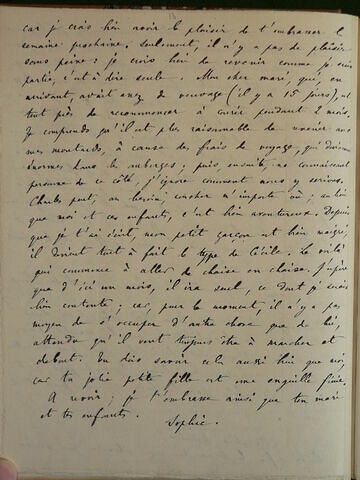 car je crois bien avoir le plaisir de t'embrasser la
semaine prochaine. Seulement, il n'y a pas de plaisir
sans peine : je crois bien de revenir comme je suis
partie, c'est à dire seule. Mon cher mari, qui, en
arrivant, avait assez de veuvage (il y a 15 jours), est
tout près de recommencer à Curée pendant 2 mois.
Je comprends qu'il est plus raisonnable de mener
mes moutards, à cause des frais de voyage, qui
énormes dans les auberges ; puis, ensuite, ne connaissant
personne de ce côté, j'ignore comment nous y serions.
Charles peut, au besoin, coucher n'importe où ; au lieu
que moi et ces enfants, c'est bien aventureux. Depuis
que je t'ai écrit, mon petit garçon est bien maigri,
il devient tout à fait le type de Cécile. Le voilà
qui commence à aller de chaise en chaise. J'espère
que d'ici un mois, il ira seul, ce dont je serais
bien contente ; car, pour le moment, il n'y a pas
moyen de s'occuper d'autre chose que de lui,
attendu qu'il veut toujours être à marcher et
debout. Tu dois savoir cela aussi bien que moi,
car ta jolie petite fille est une anguille finie.
A revoir ; je t'embrasse ainsi que ton mari
et tes enfants.
Sophie.